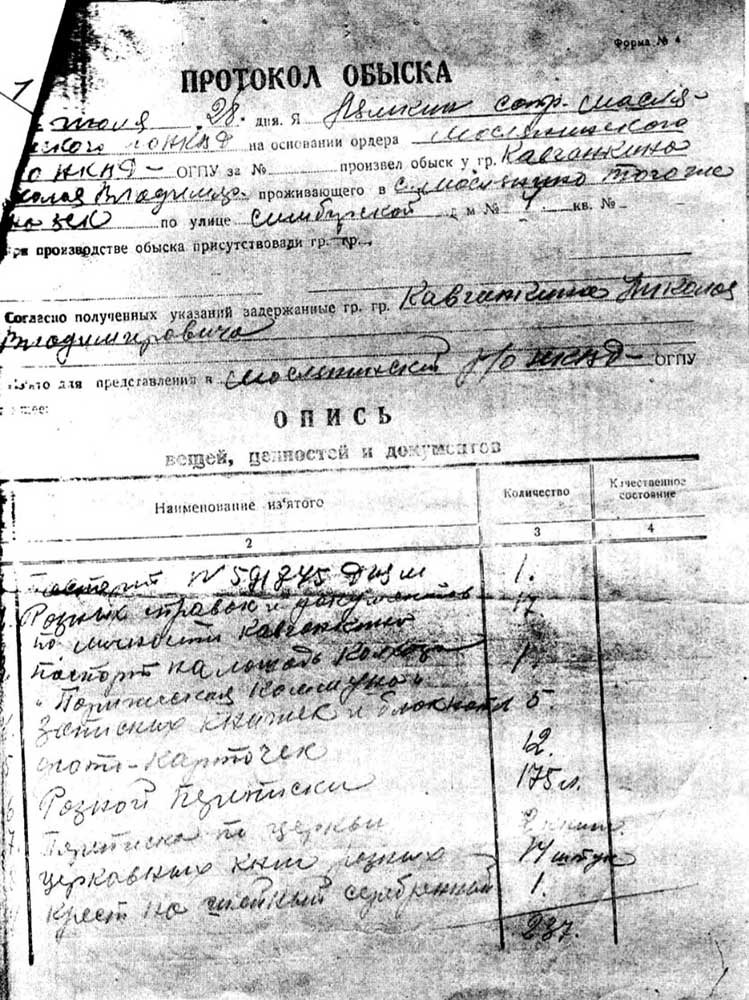 Форма № 4
1
ПРОТОКОЛ ОБЫСКА
июля 28 дня. Я сотр. Масля-
нского РО НКВД на основании ордера Маслянинского
РО НКВД — ОГПУ за № произвел обыск у гр. Кавганкина
колая Владимир. проживающего в с. Маслянино того же
по улице Симбирской д м № 4 кв. №
при производстве обыска присутствовали гр. гр.
Согласно полученных указаний задержанные гр. гр. Кавганкина Николая
Владимировича
Из'ято для представления в Маслянинский Р/О НКВД — ОГПУ
ющее:
ОПИСЬ
вещей, ценностей и документов
Наименование из'ятого Количество Качественное состояние
2 3 4
Паспорт № 591345 1.
Разных справок и документов 17
по личности Кавганкина
Паспорт на лошадь Колхоза 1
"Парижская Коммуна"
Записных книжек и блокнотов 5.
фото-карточек 12.
Разной переписки 175 л.
7. Переписка по церкви
Церковных книг разных 14 штук
Крест на шейный серебренный 1.
237.